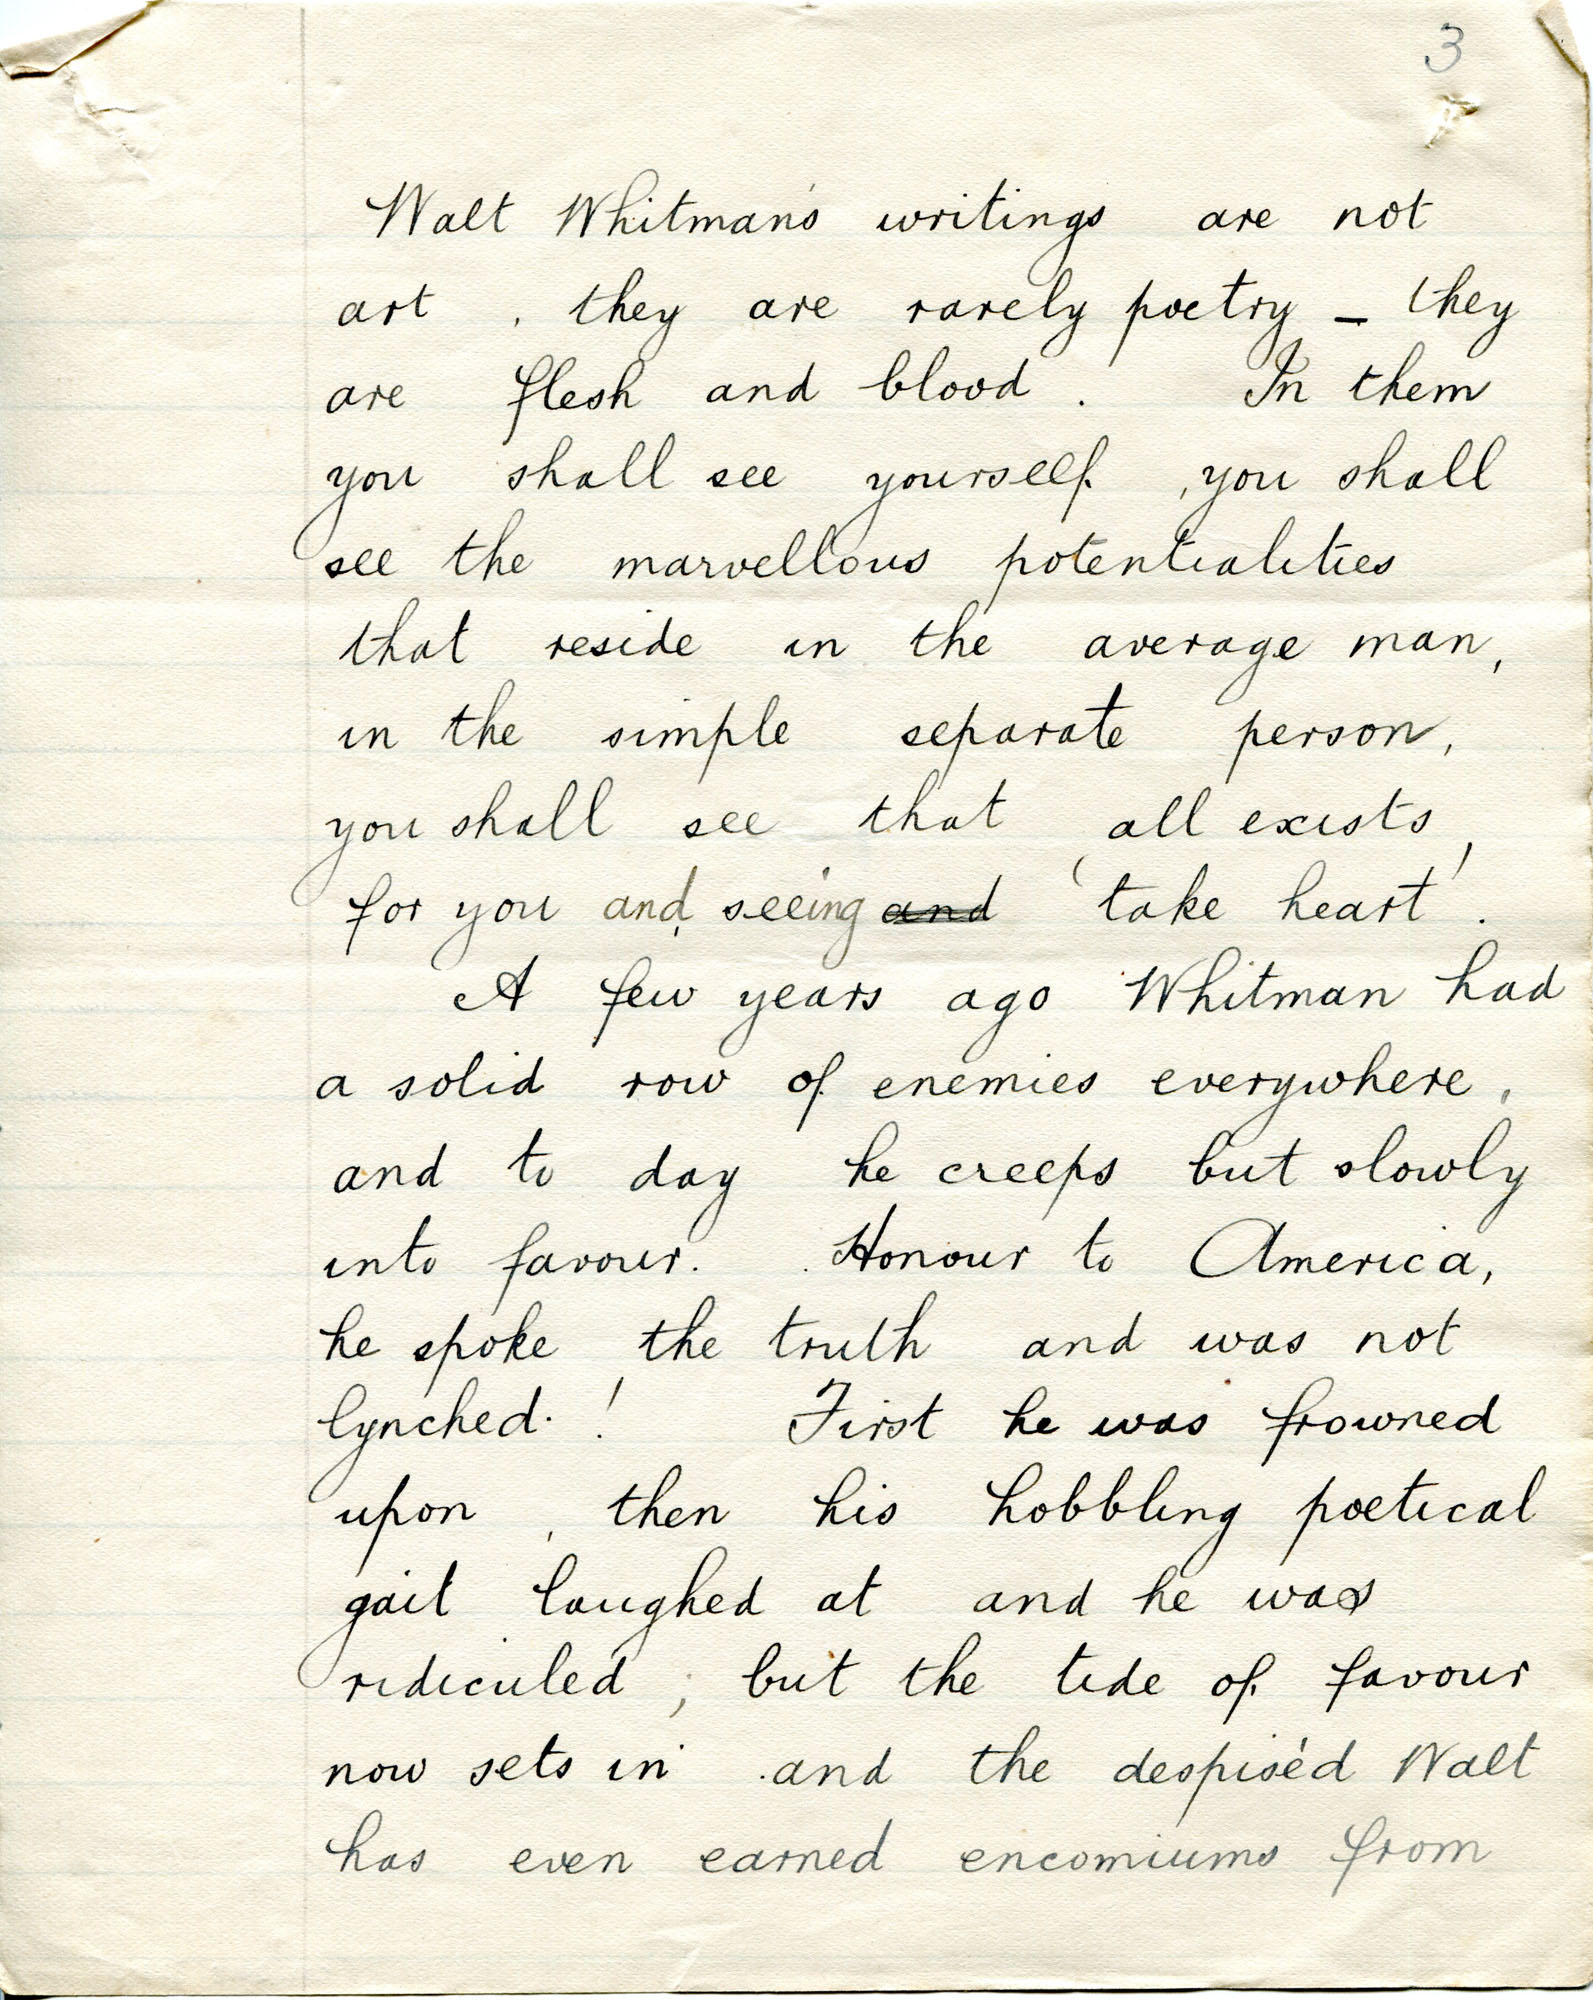 3
Walt Whitman's writings are not
art, they are rarely poetry – they
are flesh and blood. In them
you shall see yourself, you shall
see the marvellous potentialities
that reside in the average man,
in the simple separate person,
you shall see that 'all exists
for you' and, seeing and 'take heart'.
A few years ago Whitman had
a solid row of enemies everywhere,
and to day he creeps but slowly
into favour. Honour to America,
he spoke the truth and was not
lynched!
First he was frowned
upon, then his hobbling poetical
gait laughed at and he was
ridiculed; but the tide of favour
now sets in and the despised Walt
has even earned encomiums from